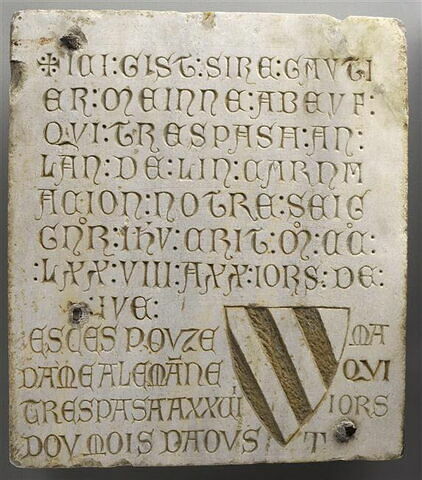 ✠ICI:GIST:SIRE:GAUTI
ER:MEINNE:ABEUF:
QUI:TRESPASA:AN:
LAN:DE:LIN:CARNM
ACION:NOTRE:SEIG
GNR:IHU:CRIT:M:CC:
:LXX:VIII:AXX:IORS:DE:
:IVE:
ESCES POUZE MA
DAME ALEMANE QUI
TRESPASA AXXVII IORS
DOU MOIS DAOUS T